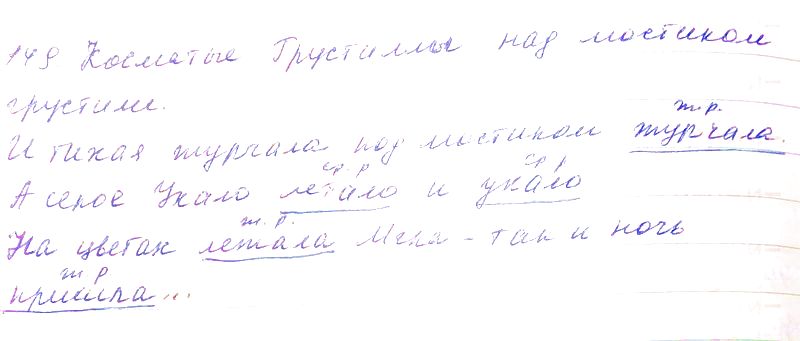 149. Косматые Грустиллы над мостиком
грустили.
ж.р.
И тихая журчала под мостиком журчала.
ср. р ср р
А серое Укало летало и укало
ж. р.
На цветах лежала Мгла - так и ночь
ж р
пришла...